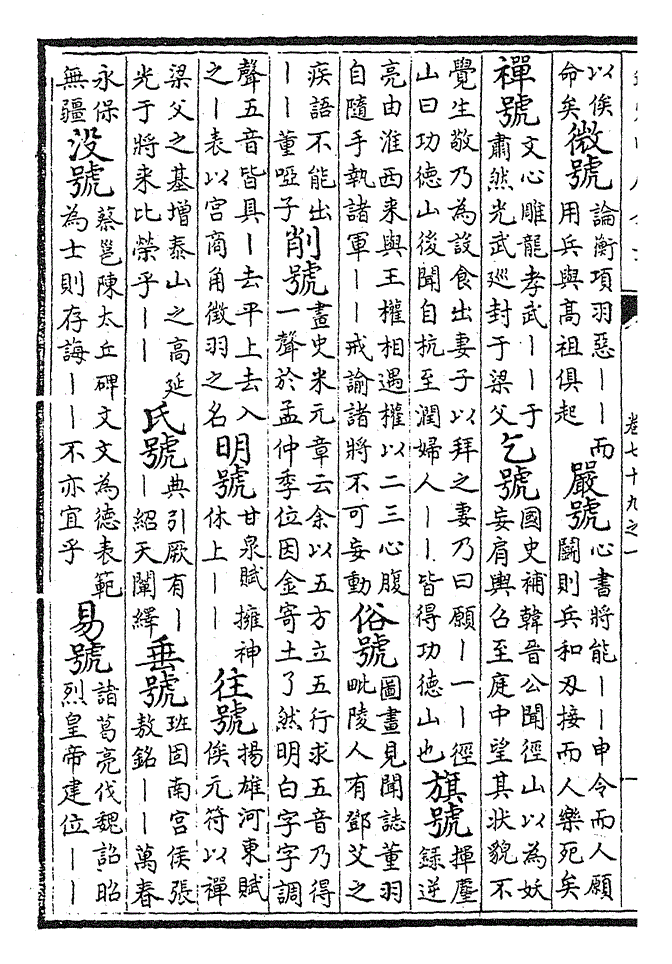 以俟
命矣
微號
論衡項羽惡丨丨而
用兵與髙祖俱起
嚴號
心書將能丨丨申令而人願
鬭則兵和刄接而人樂死矣
禪號
文心雕龍孝武丨丨于
肅然光武巡封于梁父
乞號
國史補韓晉公聞徑山以為妖
妄肩輿召至庭中望其狀貌不
覺生敬乃為設食出妻子以拜之妻乃曰願丨一丨徑
山曰功德山後聞自杭至潤婦人丨丨皆得功德山也
旗號
揮麈
錄逆
亮由淮西来與王權相遇權以二三心腹
自隨手執諸軍丨丨戒諭諸將不可妄動
俗號
圖畫見聞誌董羽
毗陵人有鄧艾之
疾語不能出
丨丨董啞子
削號
畫史米元章云余以五方立五行求五音乃得
一聲於孟仲季位因金寄土了然明白字字調
聲五音皆具丨去平上去入
之丨表以宮商角徵羽之名
明號
甘泉賦擁神
休上丨丨
往號
揚雄河東賦
俟元符以禪
梁父之基增泰山之髙延
光于將来比榮乎丨丨
氏號
典引厥有丨
丨紹天闡繹
垂號
班固南宮侯張
敖銘丨丨萬春
永保
無疆
没號
蔡邕陳太丘碑文文為德表範
為士則存誨丨丨不亦宜乎
易號
諸葛亮伐魏詔昭
烈皇帝建位丨丨
卷七十九之一
一